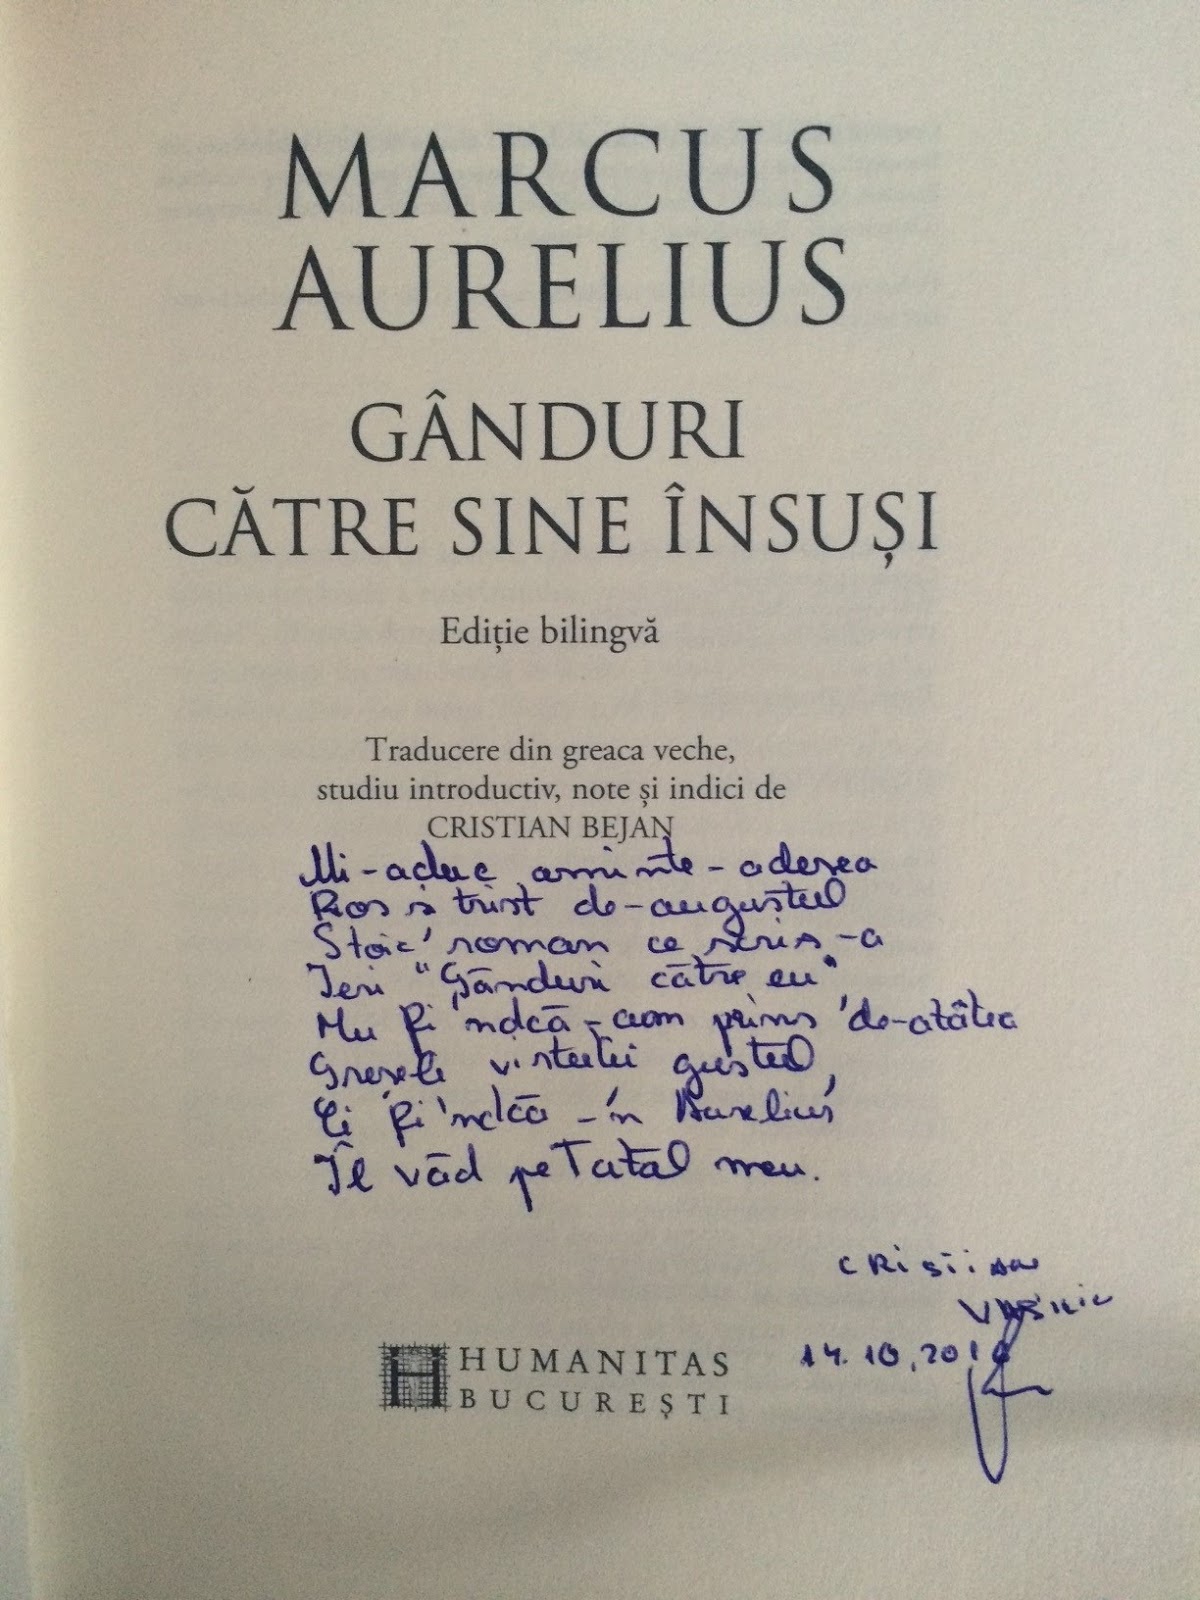 MARCUS
AURELIUS
GÂNDURI
CĂTRE SINE ÎNSUȘI
Ediție bilingvă
Traducere din greaca veche,
studiu introductiv, note și indici de
CRISTIAN BEJAN
Mi-aduc aminte-adesea
de-augustul
Stoic roman ce scris-a
Ieri "Gânduri către eu"
Nu fi'ndcă-am prins de-atâtea
Greșeli virtuții gustul,
Ci fi'ndcă-'n Aurelius
Îl văd pe Tatăl meu.
CRISTIAN
VASILIU
14.10.201
HUMANITAS
BUCUREȘTI